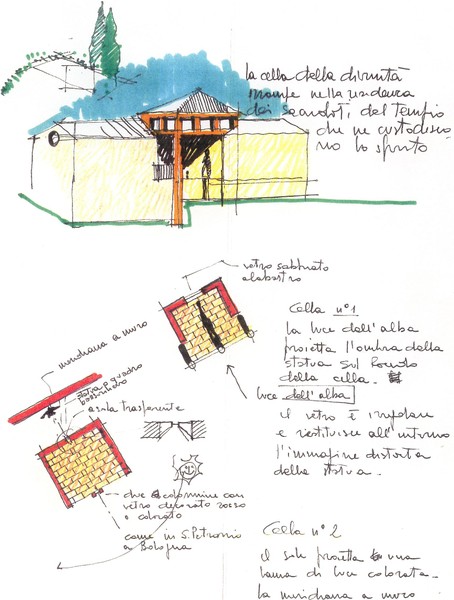 la cella della divinità
irrompe nella residenza
dei sacerdoti del tempio
che ne custodisco
no lo spirito
vetro sabbiato
alabastro
meridiana a muro
asola trasparente
due colonnine con
vetro decorato rosso
e colorato
come in S. Petronio
a Bologna
Cella n°1
la luce dell'alba
proietta l'ombra della
statua sul fondo
della cella.
luce dell'alba
il vetro è irregolare
e restituisce all'interno
l'immagine distorta
della statua.
Cella n°2
il sole proietta una
lama di luce colorata.
la meridiana a muro